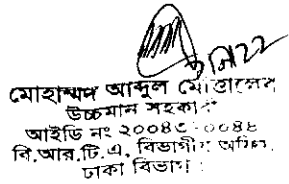 মোহাম্মদ আব্দুল মোত্তালেব
উচ্চমান সহকারী
আইডি নং ২০০৪৩ ০০৪৪
বি.আর.টি.এ, বিভাগীয় অফিস,
ঢাকা বিভাগ।